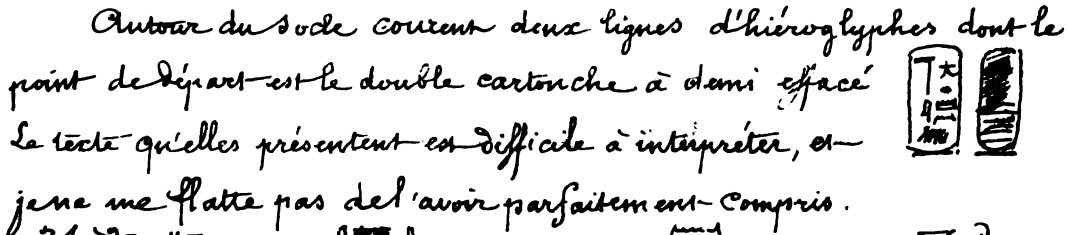 Autour du socle courent deux lignes d'hiéroglyphes dont le
point de départ est le double cartouche à demi effacé
Le texte qu'elles présentent est difficile à interpréter, et
je ne me flatte pas de l'avoir parfaitement compris.